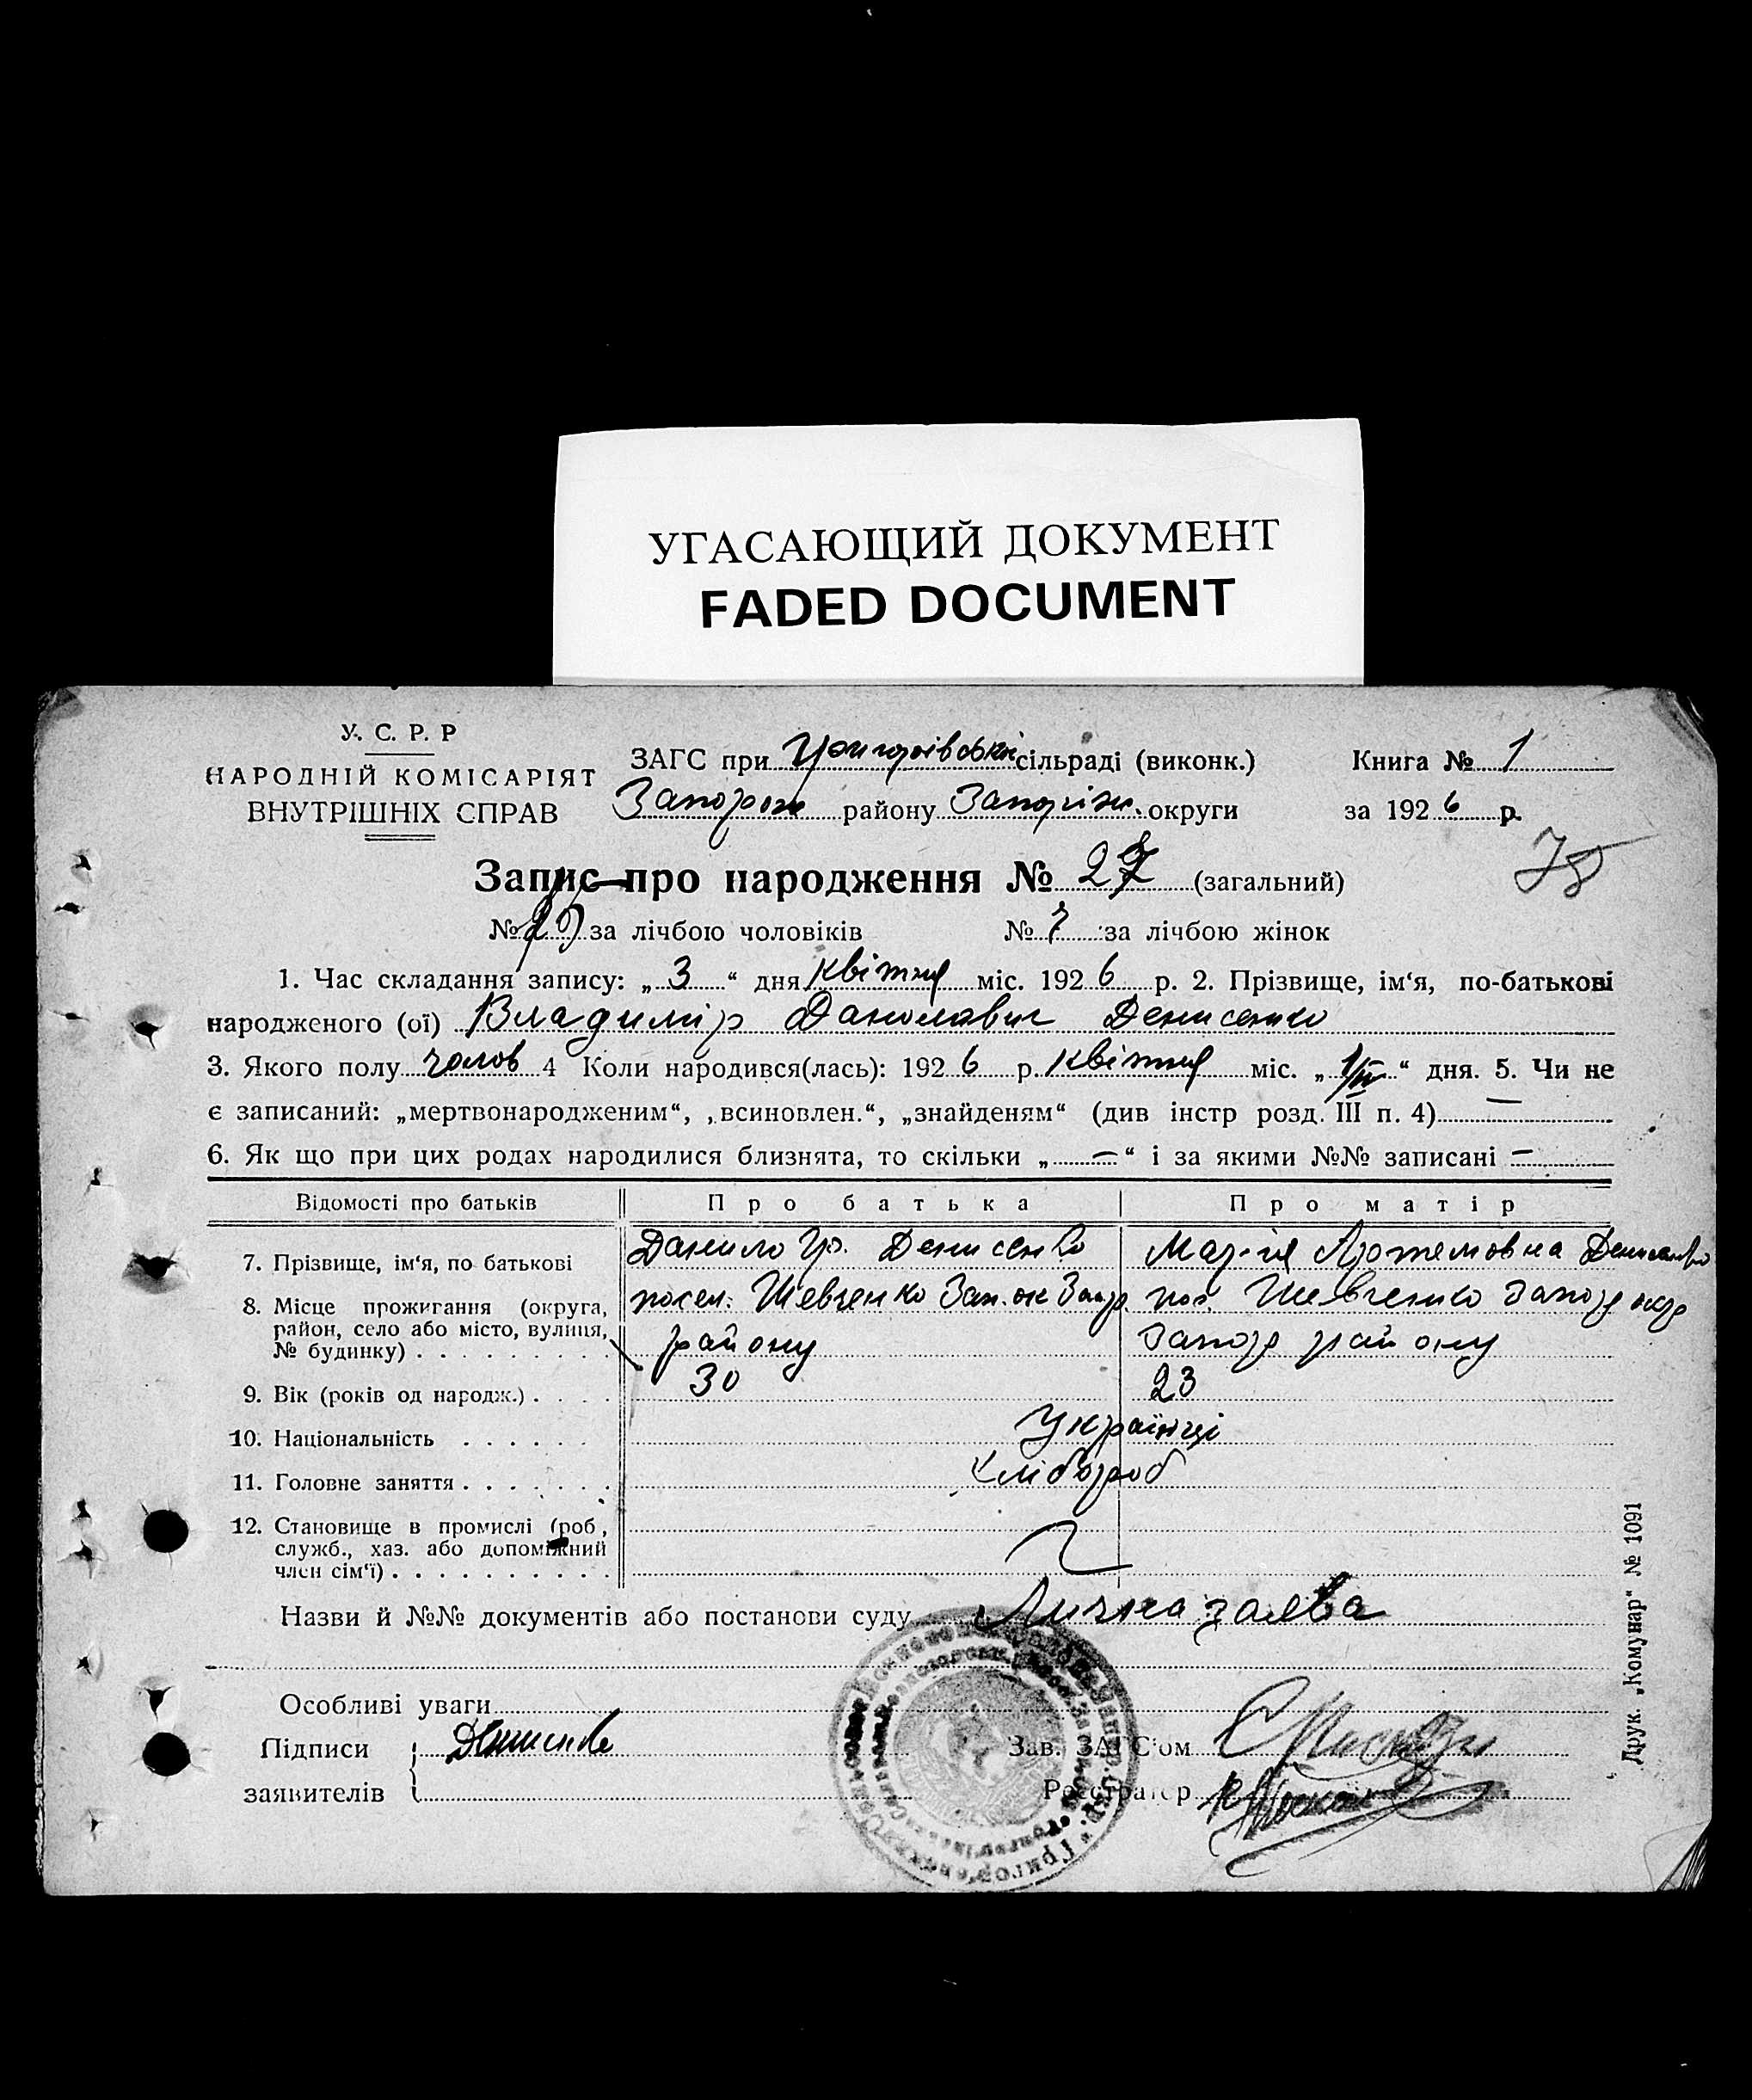 УГАСАЮЩИЙ ДОКУМЕНТ
FADED DOCUMENT
У. С. Р. Р
НАРОДНІЙ КОМІСАРІЯТ
ВНУТРІШНІХ СПРАВ
ЗАГС при Григорівській сільраді (виконк.)
Запорож району Запоріж. округи
Книга № 1
за 1926 р.
78
Запис про народження № 27 (загальний)
№ за лічбою чоловіків № 7 за лічбою жінок
1. Час складання запису: „3“ дня Квітня міс. 1926 р. 2. Прізвище, ім‘я, по-батькові
народженого (ої) Владимір Данилавич Денисенко
3. Якого полу чолов 4 Коли народився(лась): 1926 р. Квітня міс. „1/IV“ дня. 5. Чи не
є записаний: „мертвонародженим“, „всиновлен.“, „знайденям“ (див інстр розд. III п. 4) —
6. Як що при цих родах народилися близнята, то скільки „—“ і за якими №№ записані —
Відомості про батьків Про батька Про матір
7. Прізвище, ім‘я, по батькові Данило Гр. Денисенко Марія Артемовна Денисенко
8. Місце проживання (округа, район, село або місто, вулиця, № будинку) посел. Шевченко Зап. ок Запор. району пос. Шевченко Запор окр Запор району
9. Вік (років од народж.) 30 23
10. Національність Українці
11. Головне заняття Хлібороб
12. Становище в промислі (роб, служб., хаз. або допоміжний член сім‘ї)
Назви й №№ документів або постанови суду Лична заява
Особливі уваги
Підписи
заявителів
Зав. ЗАГС‘ом
Реєстратор
Друк. „Комунар“ № 1091